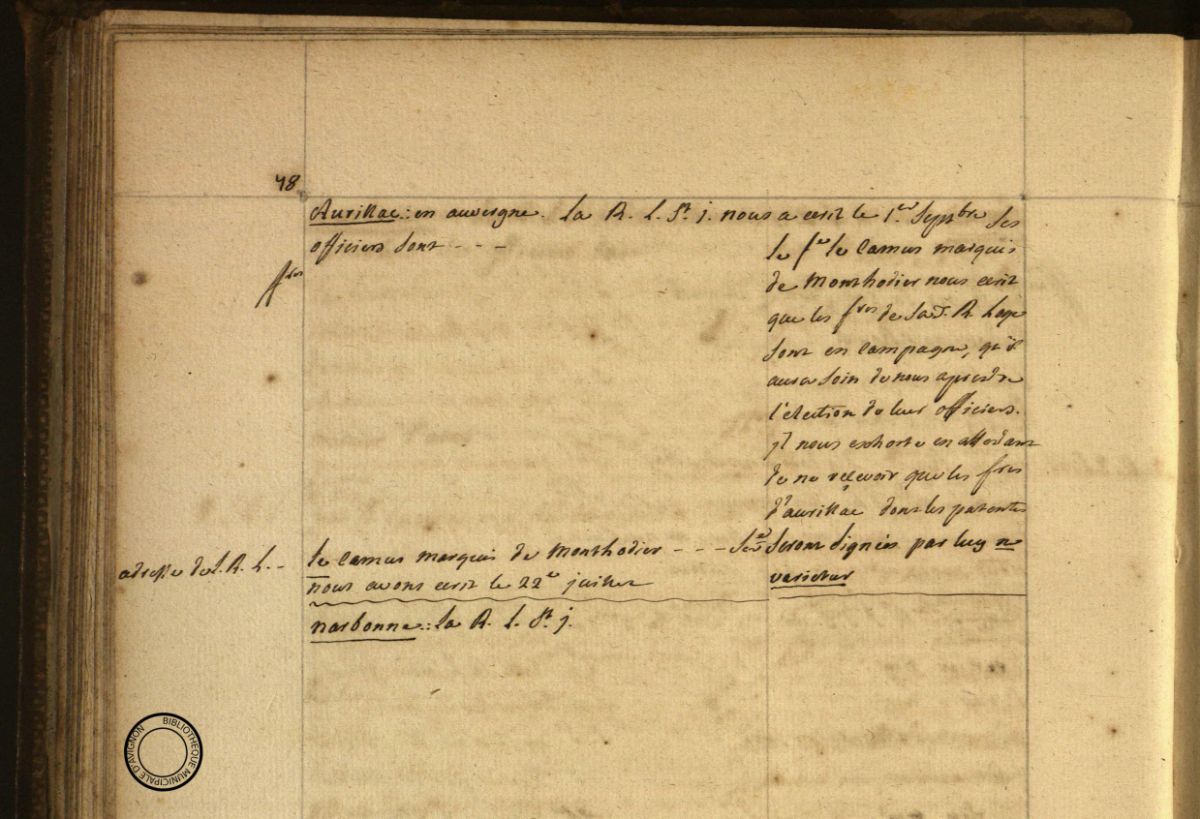 48
Aurillac: en auvergne. la R. L. St. j. nous a ecrit le 1.er septbre Ses
officiers sont - - -
ffres
le fre le Camus marquis
de Monthodier nous ecrit
que les fres de sad. R. Loge
sont en Campagne, qu'il
aura soin de nous aprendre
l'election de leur officiers.
jl nous exhorte en attendant
de ne recevoir que les fres
d'aurillac dont les patentes
seront signées par luy ne
varietur
adresse de l. R. L. -
le Camus marquis de Monthodier - - -
nous avons ecrit le 22e juillet
narbonne: la R. L. St. j.
BIBLIOTHEQUE MUNICIPALE D'AVIGNON